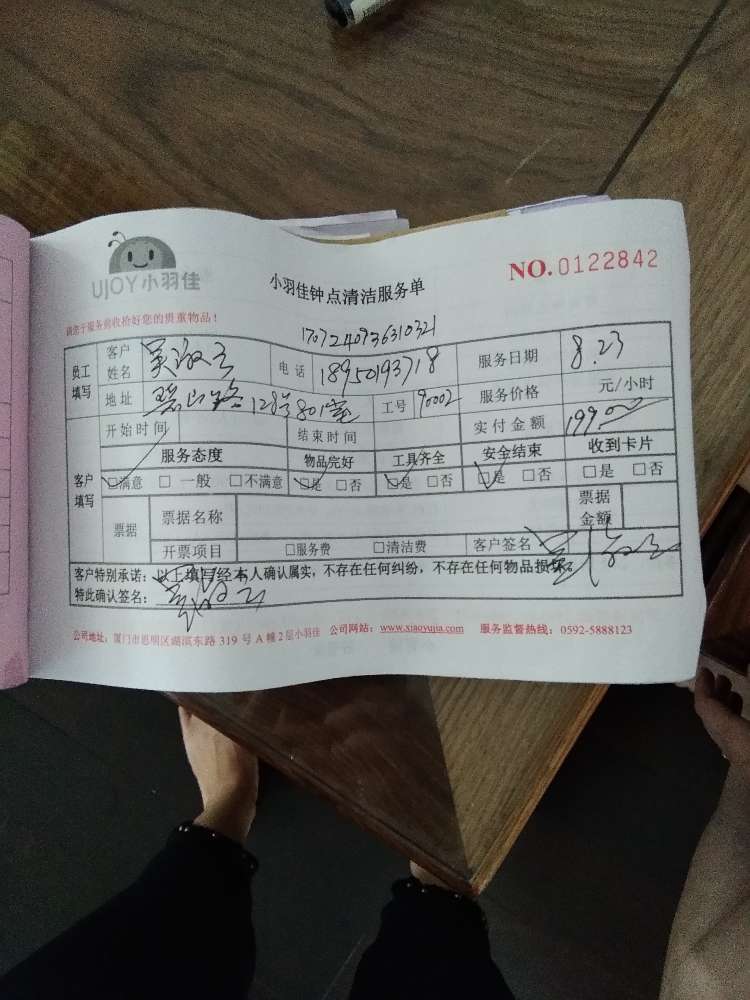 UJOY小羽佳
小羽佳钟点清洁服务单
NO.0122842
请您于服务前收拾好您的贵重物品！
1707240936310321
员工填写 客户姓名 吴淑 电话 18950193718 服务日期 8.23
地址 碧山路128号801室 工号 90002 服务价格 元/小时
开始时间 结束时间 实付金额 199.00
客户填写 服务态度 物品完好 工具齐全 安全结束 收到卡片
□满意 □一般 □不满意 □是 □否 □是 □否 □是 □否 □是 □否
票据 票据名称 票据金额
开票项目 □服务费 □清洁费 客户签名
客户特别承诺：以上填写经本人确认属实，不存在任何纠纷，不存在任何物品损坏。
特此确认签名：
公司地址：厦门市思明区湖滨东路 319 号 A 幢 2 层小羽佳 公司网站：www.xiaoyujia.com 服务监督热线：0592-5888123